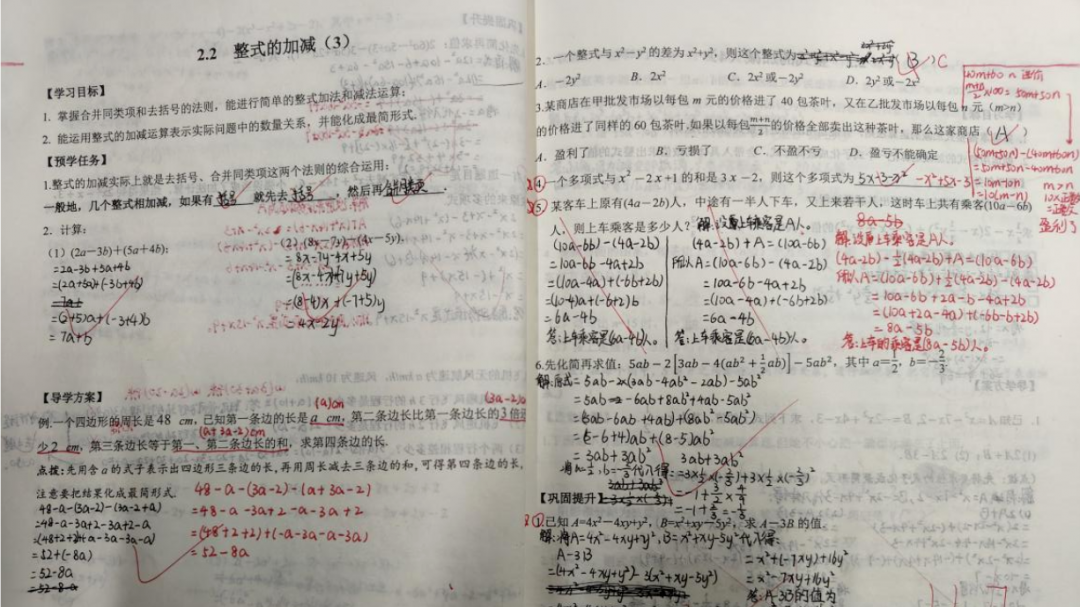 2.2 整式的加减（3）
【学习目标】
1. 掌握合并同类项和去括号的法则，能进行简单的整式加法和减法运算；
2. 能运用整式的加减运算表示实际问题中的数量关系，并能化成最简形式.
【预学任务】
1.整式的加减实际上就是去括号、合并同类项这两个法则的综合运用：
一般地，几个整式相加减，如果有括号 就先去括号，然后再合并同类项.
2. 计算：
（1）(2a－3b)＋(5a＋4b)；
=2a-3b+5a+4b
=(2a+5a)+(-3b+4b)
=(2+5)a+(-3+4)b
=7a+b
（2）(8x－7y)－(4x－5y).
=8x-7y-4x+5y
=(8x-4x)+(-7y+5y)
=(8-4)x+(-7+5)y
=4x-2y
【导学方案】
(a)cm
(3a-2)cm
例.一个四边形的周长是 48 cm，已知第一条边的长是 a cm，第二条边长比第一条边长的 3 倍还
(a+3a-2)cm
少 2 cm，第三条边长等于第一、第二条边长的和，求第四条边的长.
点拨：先用含 a 的式子表示出四边形三条边的长，再用周长减去三条边的和，可得第四条边的长，
注意要把结果化成最简形式.
48-a-(3a-2)-(3a-2+a)
=48-a-3a+2-3a+2-a
=(48+2+2)+(-a-3a-3a-a)
=52+(-8a)
=52-8a
48-a-(3a-2)-(a+3a-2)
=48-a-3a+2-a-3a+2
=(48+2+2)+(-a-3a-a-3a)
=52-8a
2.一个整式与 x²－y² 的差为 x²+y²，则这个整式为（B）C
A. －2y² B. 2x² C. 2x² 或－2y² D. 2y² 或－2x²
3.某商店在甲批发市场以每包 m 元的价格进了 40 包茶叶，又在乙批发市场以每包 n 元（m>n）
的价格进了同样的 60 包茶叶.如果以每包 (m+n)/2 的价格全部卖出这种茶叶，那么这家商店（A）
A. 盈利了 B. 亏损了 C. 不盈不亏 D. 盈亏不能确定
40m+60n 进价
(m+n)/2×100=50m+50n
(50m+50n)-(40m+60n)
=50m+50n-40m-60n
=10m-10n
=10(m-n)
m>n
盈利了
④一个多项式与 x²－2x+1 的和是 3x－2，则这个多项式为 5x-3-x² -x²+5x-3
⑤某客车上原有(4a－2b)人，中途有一半人下车，又上来若干人，这时车上共有乘客(10a－6b)
人，则上车乘客是多少人？ 解:设上车乘客是A人。
8a-5b
(10a-6b)-(4a-2b)
=10a-6b-4a+2b
=(10a-4a)+(-6b+2b)
=(10-4)a+(-6+2)b
=6a-4b
答:上车乘客是(6a-4b)人。
(4a-2b)+A=(10a-6b)
所以A=(10a-6b)-(4a-2b)
=10a-6b-4a+2b
=(10a-4a)+(-6b+2b)
=6a-4b
答:上车乘客是(6a-4b)人。
解:设上车乘客是A人。
(4a-2b)-½(4a-2b)+A=(10a-6b)
所以A=(10a-6b)+½(4a-2b)-(4a-2b)
=10a-6b+2a-b-4a+2b
=(10a+2a-4a)+(-6b-b+2b)
=8a-5b
答:上车的乘客是(8a-5b)人。
6.先化简再求值：5ab－2[3ab－4(ab²＋½ab)]－5ab²，其中 a=½，b=－⅔
解:原式=5ab-2×(3ab-4ab²-2ab)-5ab²
=5ab-6ab+8ab²+4ab-5ab²
=(5ab-6ab+4ab)+(8ab²-5ab²)
=(5-6+4)ab+(8-5)ab²
=3ab+3ab²
3ab+3ab²
=3×½×(-⅔)+3×½×(-⅔)²
【巩固提升】
①已知 A=4x²－4xy+y²，B=x²+xy－5y²，求 A－3B 的值.
解:将A=4x²-4xy+y²,B=x²+xy-5y²代入得:
A-3B
=(4x²-4xy+y²)-3(x²+xy-5y²)
=x²+(-7xy)+16y²
=x²-7xy+16y²
答:A-3B的值为